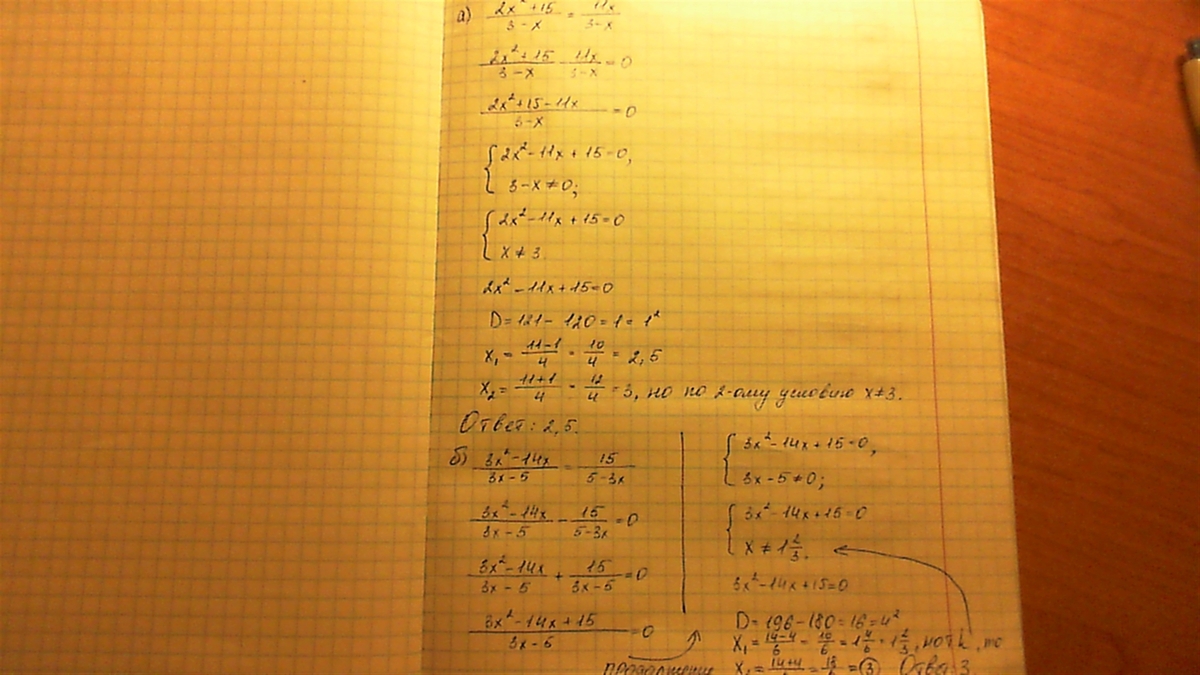 а) (2x² + 15)/(3 − x) = 11x/(3 − x)
(2x² + 15)/(3 − x) − 11x/(3 − x) = 0
(2x² + 15 − 11x)/(3 − x) = 0
{ 2x² − 11x + 15 = 0,
3 − x ≠ 0;
{ 2x² − 11x + 15 = 0
x ≠ 3.
2x² − 11x + 15 = 0
D = 121 − 120 = 1 = 1²
x₁ = (11−1)/4 = 10/4 = 2,5
x₂ = (11+1)/4 = 12/4 = 3, но по 2-ому условию x ≠ 3.
Ответ: 2,5.
б) (3x² − 14x)/(3x − 5) = 15/(5 − 3x)
(3x² − 14x)/(3x − 5) − 15/(5 − 3x) = 0
(3x² − 14x)/(3x − 5) + 15/(3x − 5) = 0
(3x² − 14x + 15)/(3x − 5) = 0
продолжение
{ 3x² − 14x + 15 = 0,
3x − 5 ≠ 0;
{ 3x² − 14x + 15 = 0
x ≠ 1 2/3.
3x² − 14x + 15 = 0
D = 196 − 180 = 16 = 4²
x₁ = (14−4)/6 = 10/6 = 1 4/6 = 1 2/3,
x₂ = (14+4)/6 = 18/6 = 3 Ответ: 3.